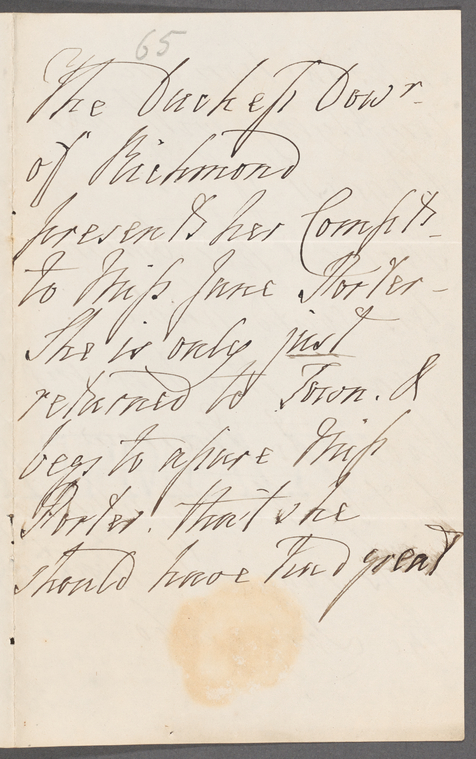 65
The Duchess Dowr-
of Richmond
presents her Compts-
to Miss Jane Porter-
She is only just
returned to Town. &
begs to assure Miss
Porter. that she
should have had great